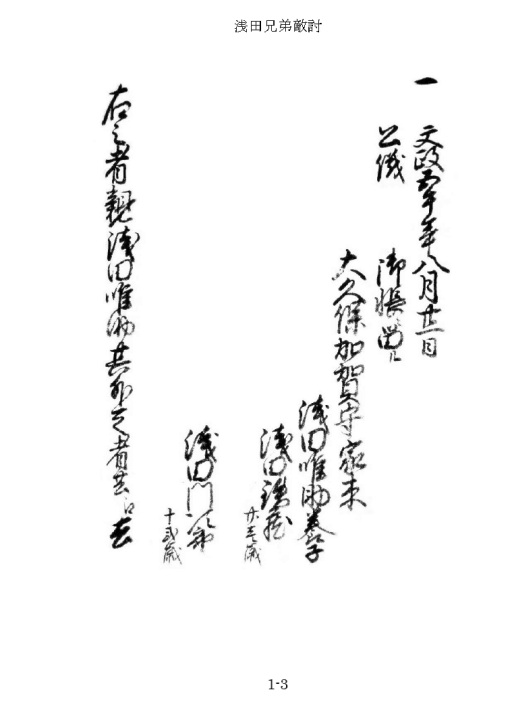 浅田兄弟敵討
一 文政五午年八月廿二日
公儀 御帳
大久保加賀守家来
浅田唯助養子
浅田鉄蔵
廿三歳
浅田門次郎
十弐歳
右之者親浅田唯助其外之者共
1-3